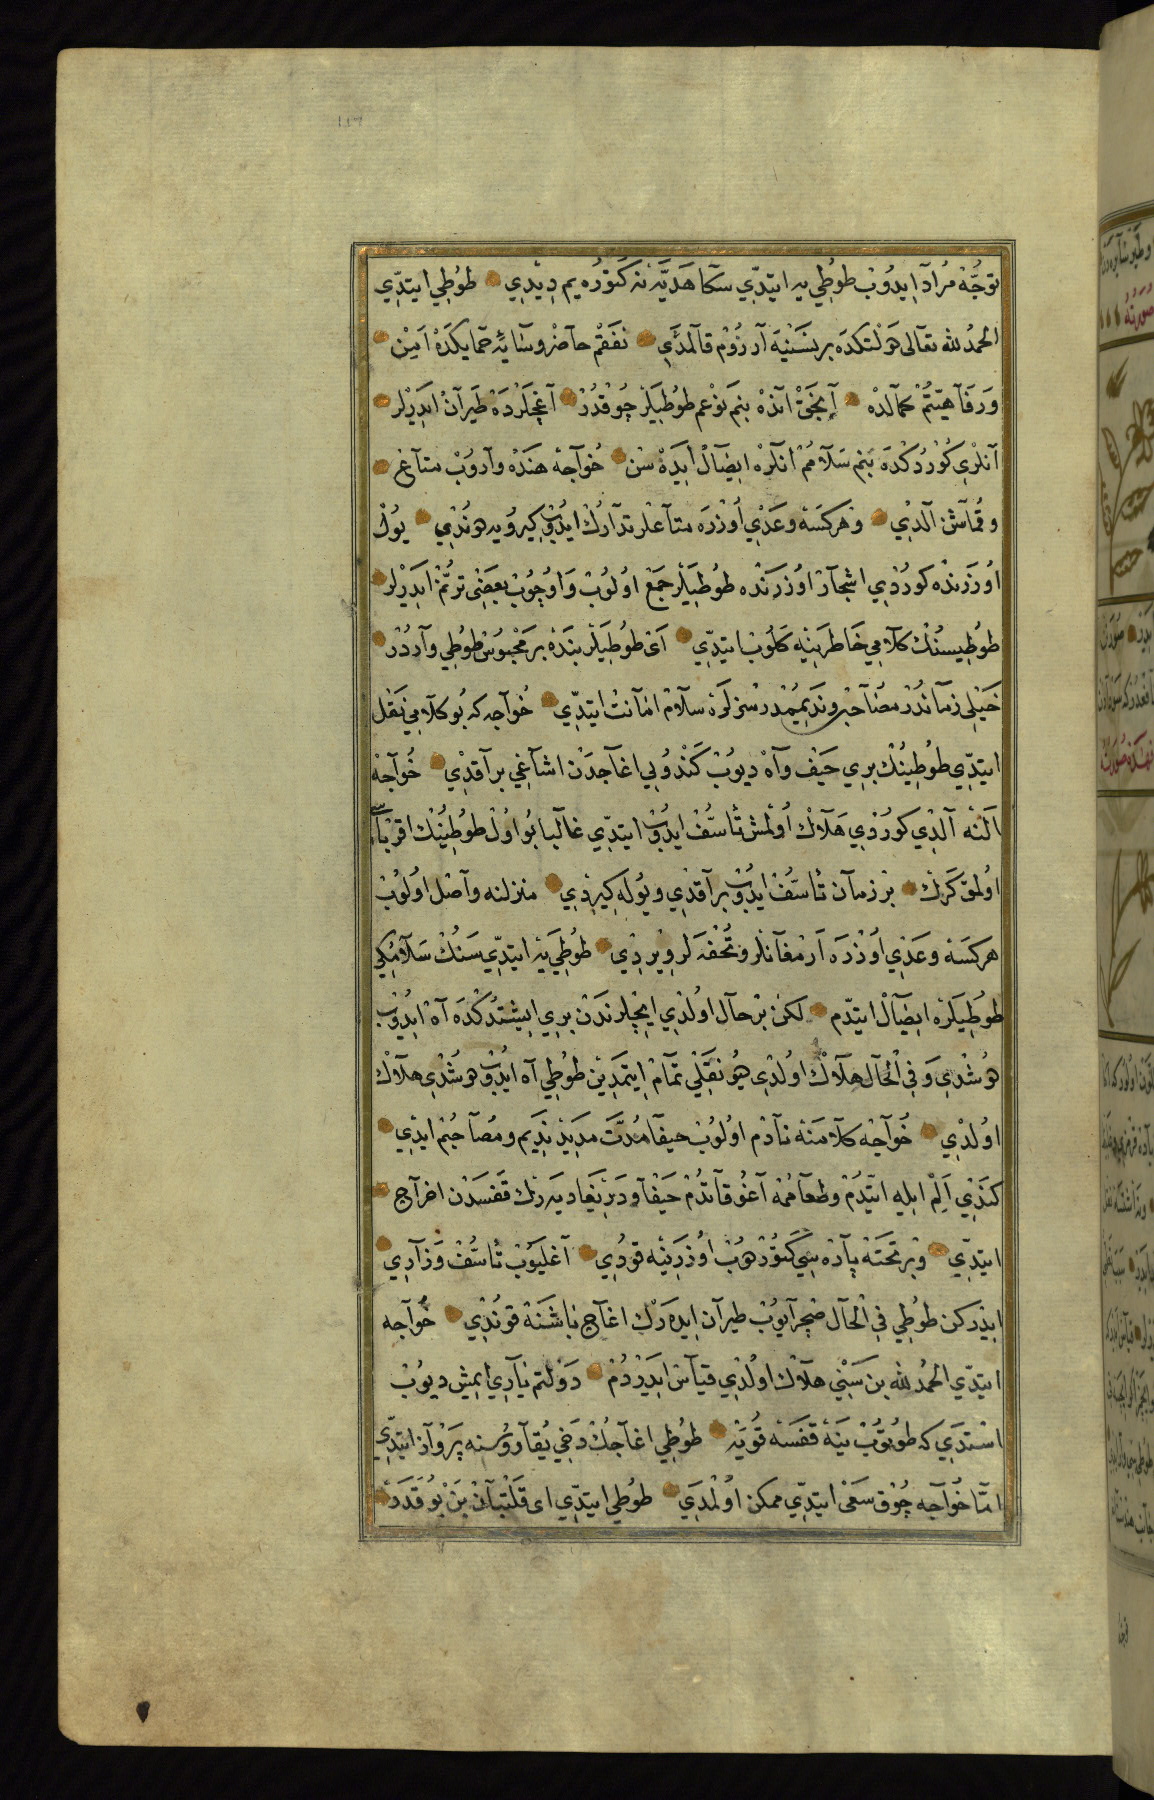 توجّه مراد ایدوب طوطی یه ایتدی سکا هدیّه نه کتوره یم دیدی طوطی ایتدی
الحمد لله تعالی هر برنسنیه آرزوم قالمدی نفقم حاضر وسایۀ حمایکده امین
ورفاهیتم آنده بنم نوعم طوطیلر چوقدر آغجلرده طیران ایدرلر
آنلری کوردکده بنم سلامم انلره ایصال ایده سن خواجه هنده واروب متاع
وقماش آلدی وهر کسه وعدی اوزره متاعلر تدارك ایدوب کیرویه دوندی یول
اوزرنده کوردی اشجار اوزرنده طوطیلر جمع اولوب واوچوب بعضی ترنّم ایدرلر
طوطیسنك کلامی خاطرینه کلوب ایتدی ای طوطیلر بنده بر محبوس طوطی واردر
خیلی زماندر مصاحب وندیممدر سزلره سلام امانت ایتدی خواجه که بو کلامی نقل
ایتدی طوطینك بری حیف وآه دیوب کندوبی اغاجدن اشاغی براقدی خواجه
النه آلدی کوردی هلاك اولمش تأسّف ایدوب ایتدی غالبا بو اول طوطینك اقرباسی
اولمق کرك بر زمان تأسّف ایدوب براقدی ویوله کیردی منزلنه واصل اولوب
هر کسه وعدی اوزره ارمغانلر وتحفه لر ویردی طوطی یه ایتدی سنك سلامکی
طوطیلره ایصال ایتدم لکن بر حال اولدی ایچلرندن بری ایشتدکده آه ایدوب
دوشدی وفی الحال هلاك اولدی بو نقلی تمام ایتمدین طوطی آه ایدوب دوشدی هلاك
اولدی خواجه کلامنه نادم اولوب حیفا مدّت مدید ندیم ومصاحبم ایدی
کندی الم ایله ایتدم وطعاممه آغو قاتدم حیفا ودریغا دیه رك قفسدن اخراج
ایتدی وبر تخته پاره سی کتوردوب اوزرینه قودی آغلیوب تأسّف وزاری
ایدرکن طوطی فی الحال صچرایوب طیران ایده رك اغاج باشنه قوندی خواجه
ایتدی الحمد لله بن سنی هلاك اولدی قیاس ایدردم دولتم یاری ایمش دیوب
استدی که طوتوب ینه قفسه قویه طوطی اغاجك دخی یقاروسنه پرواز ایتدی
امّا خواجه چوق سعی ایتدی ممکن اولمدی طوطی ایتدی ای قلتبان بن بو قدر